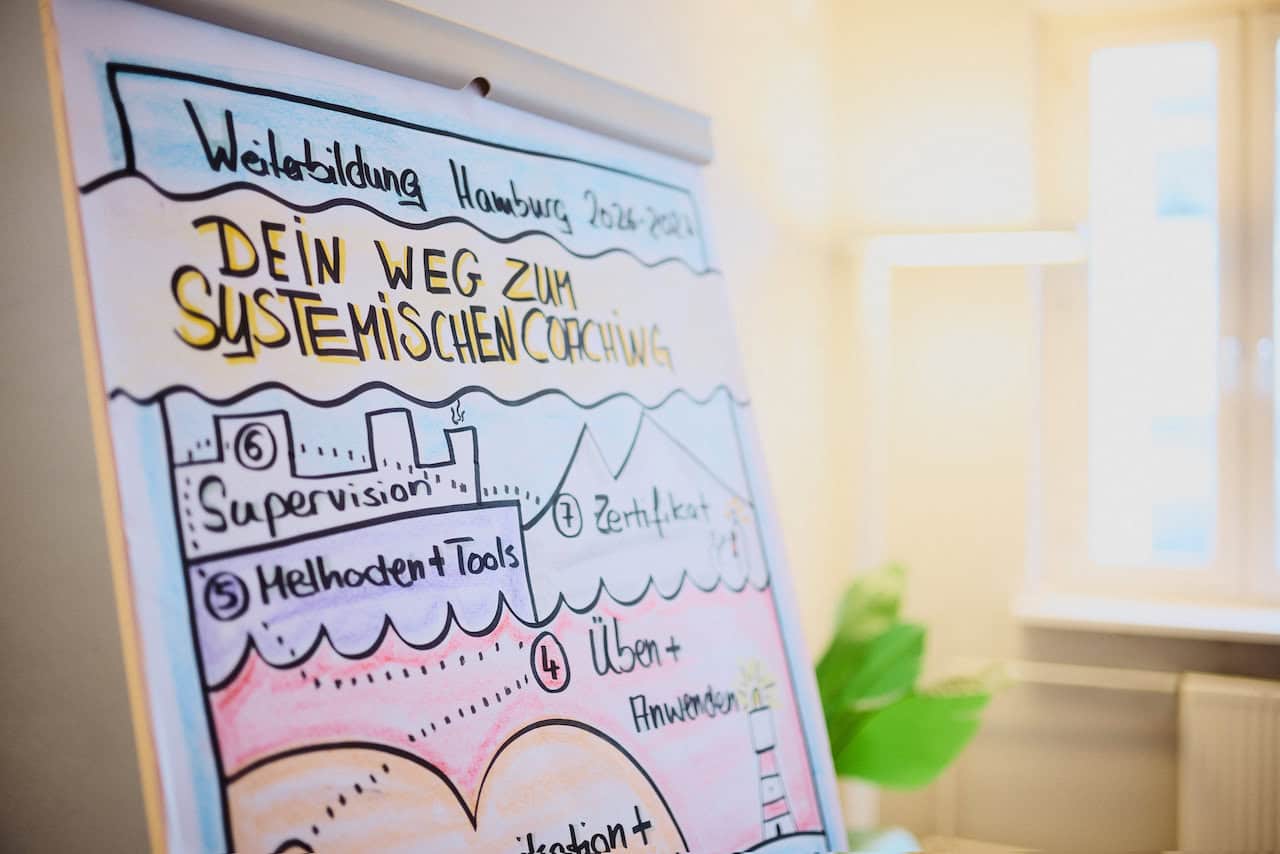 Weiterbildung Hamburg
DEIN WEG ZUM
SYSTEMISCHEN COACHING
6
Supervision
7 Zertifikat
5 Methoden + Tools
4 Üben +
Anwenden